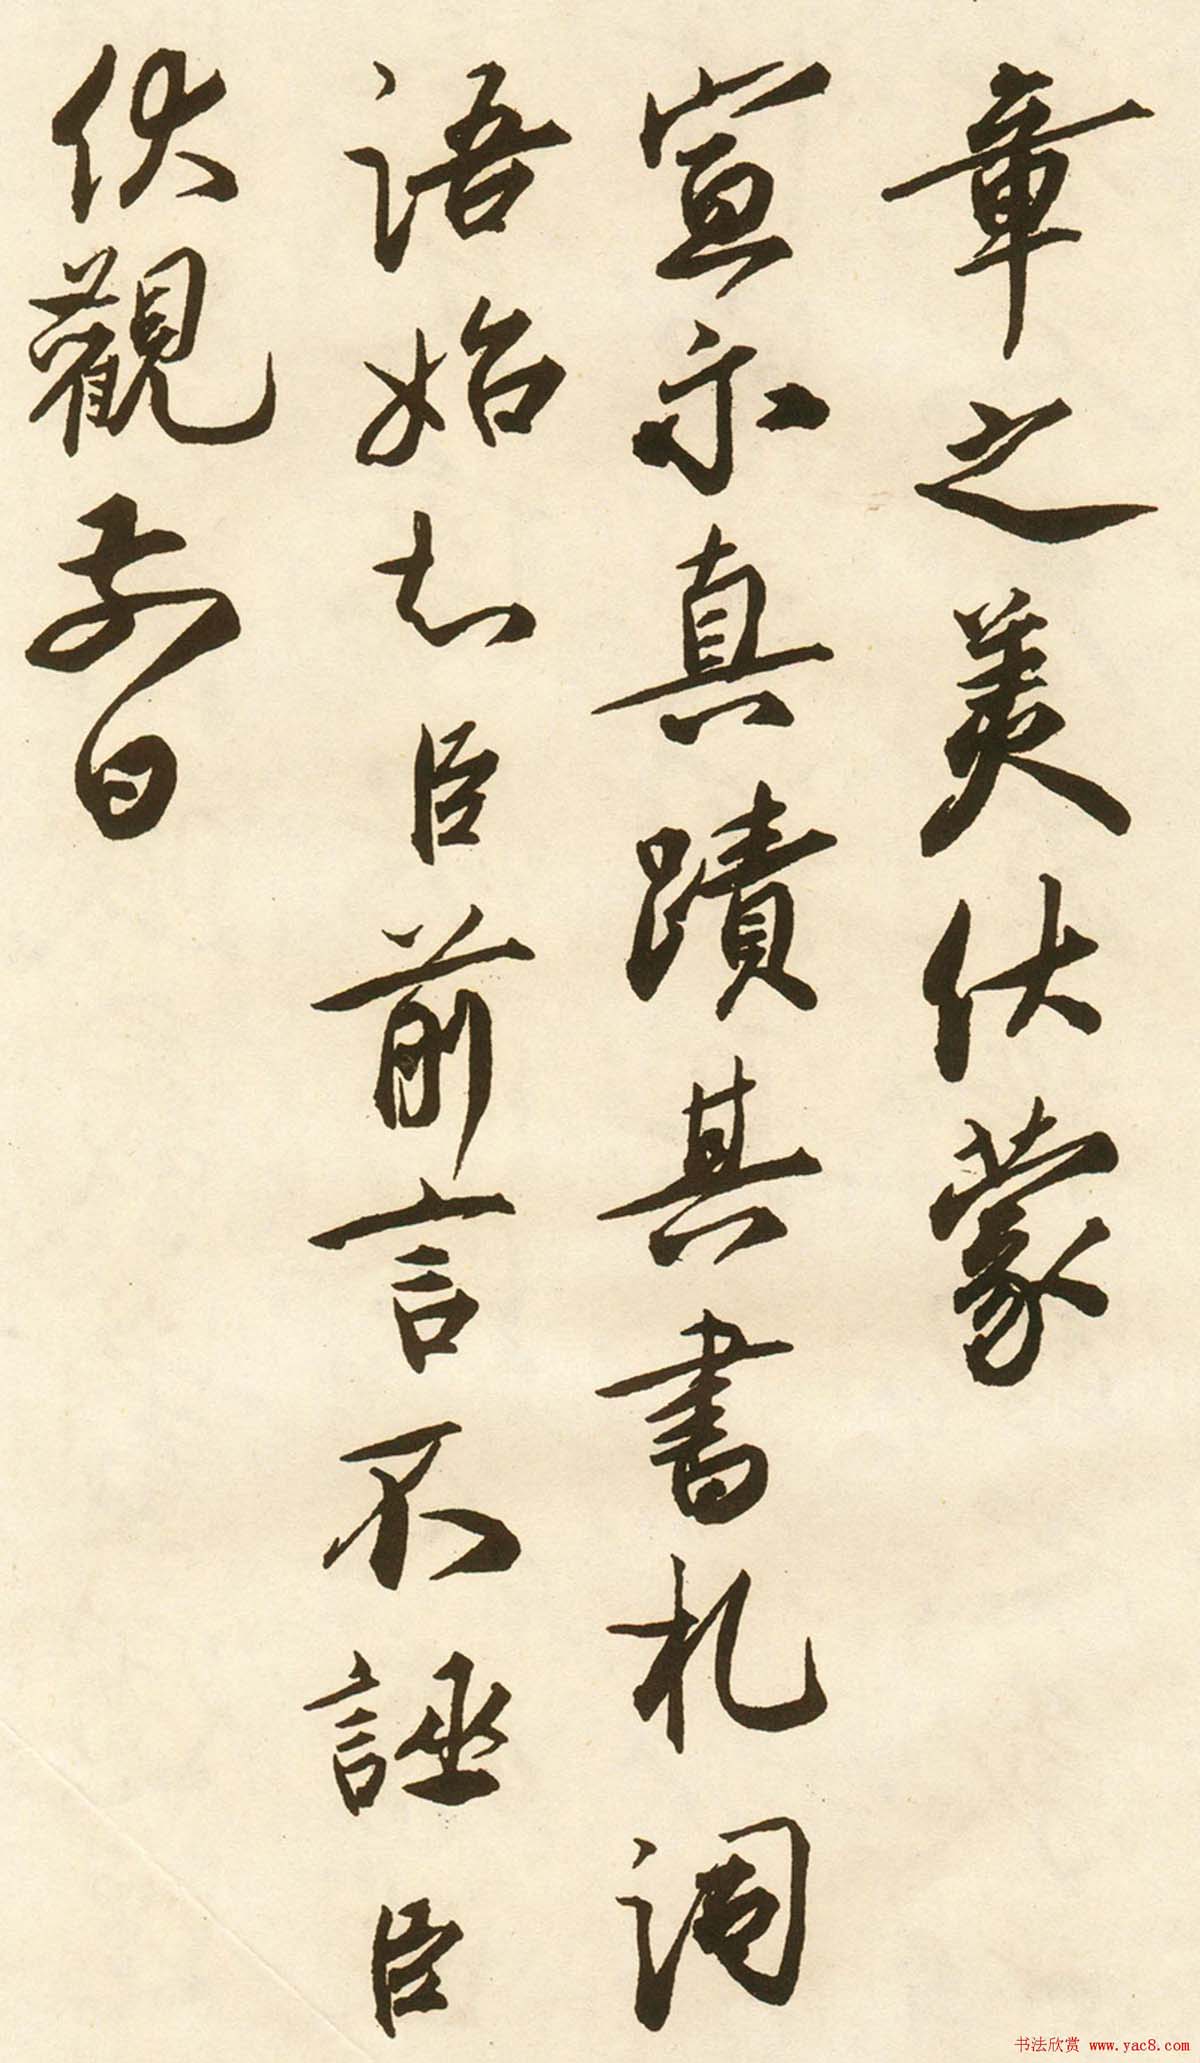 章之美伏蒙
宣示真蹟其書札詞
語始知臣前言不誣臣
伏觀前日
书法欣赏 www.yac8.com